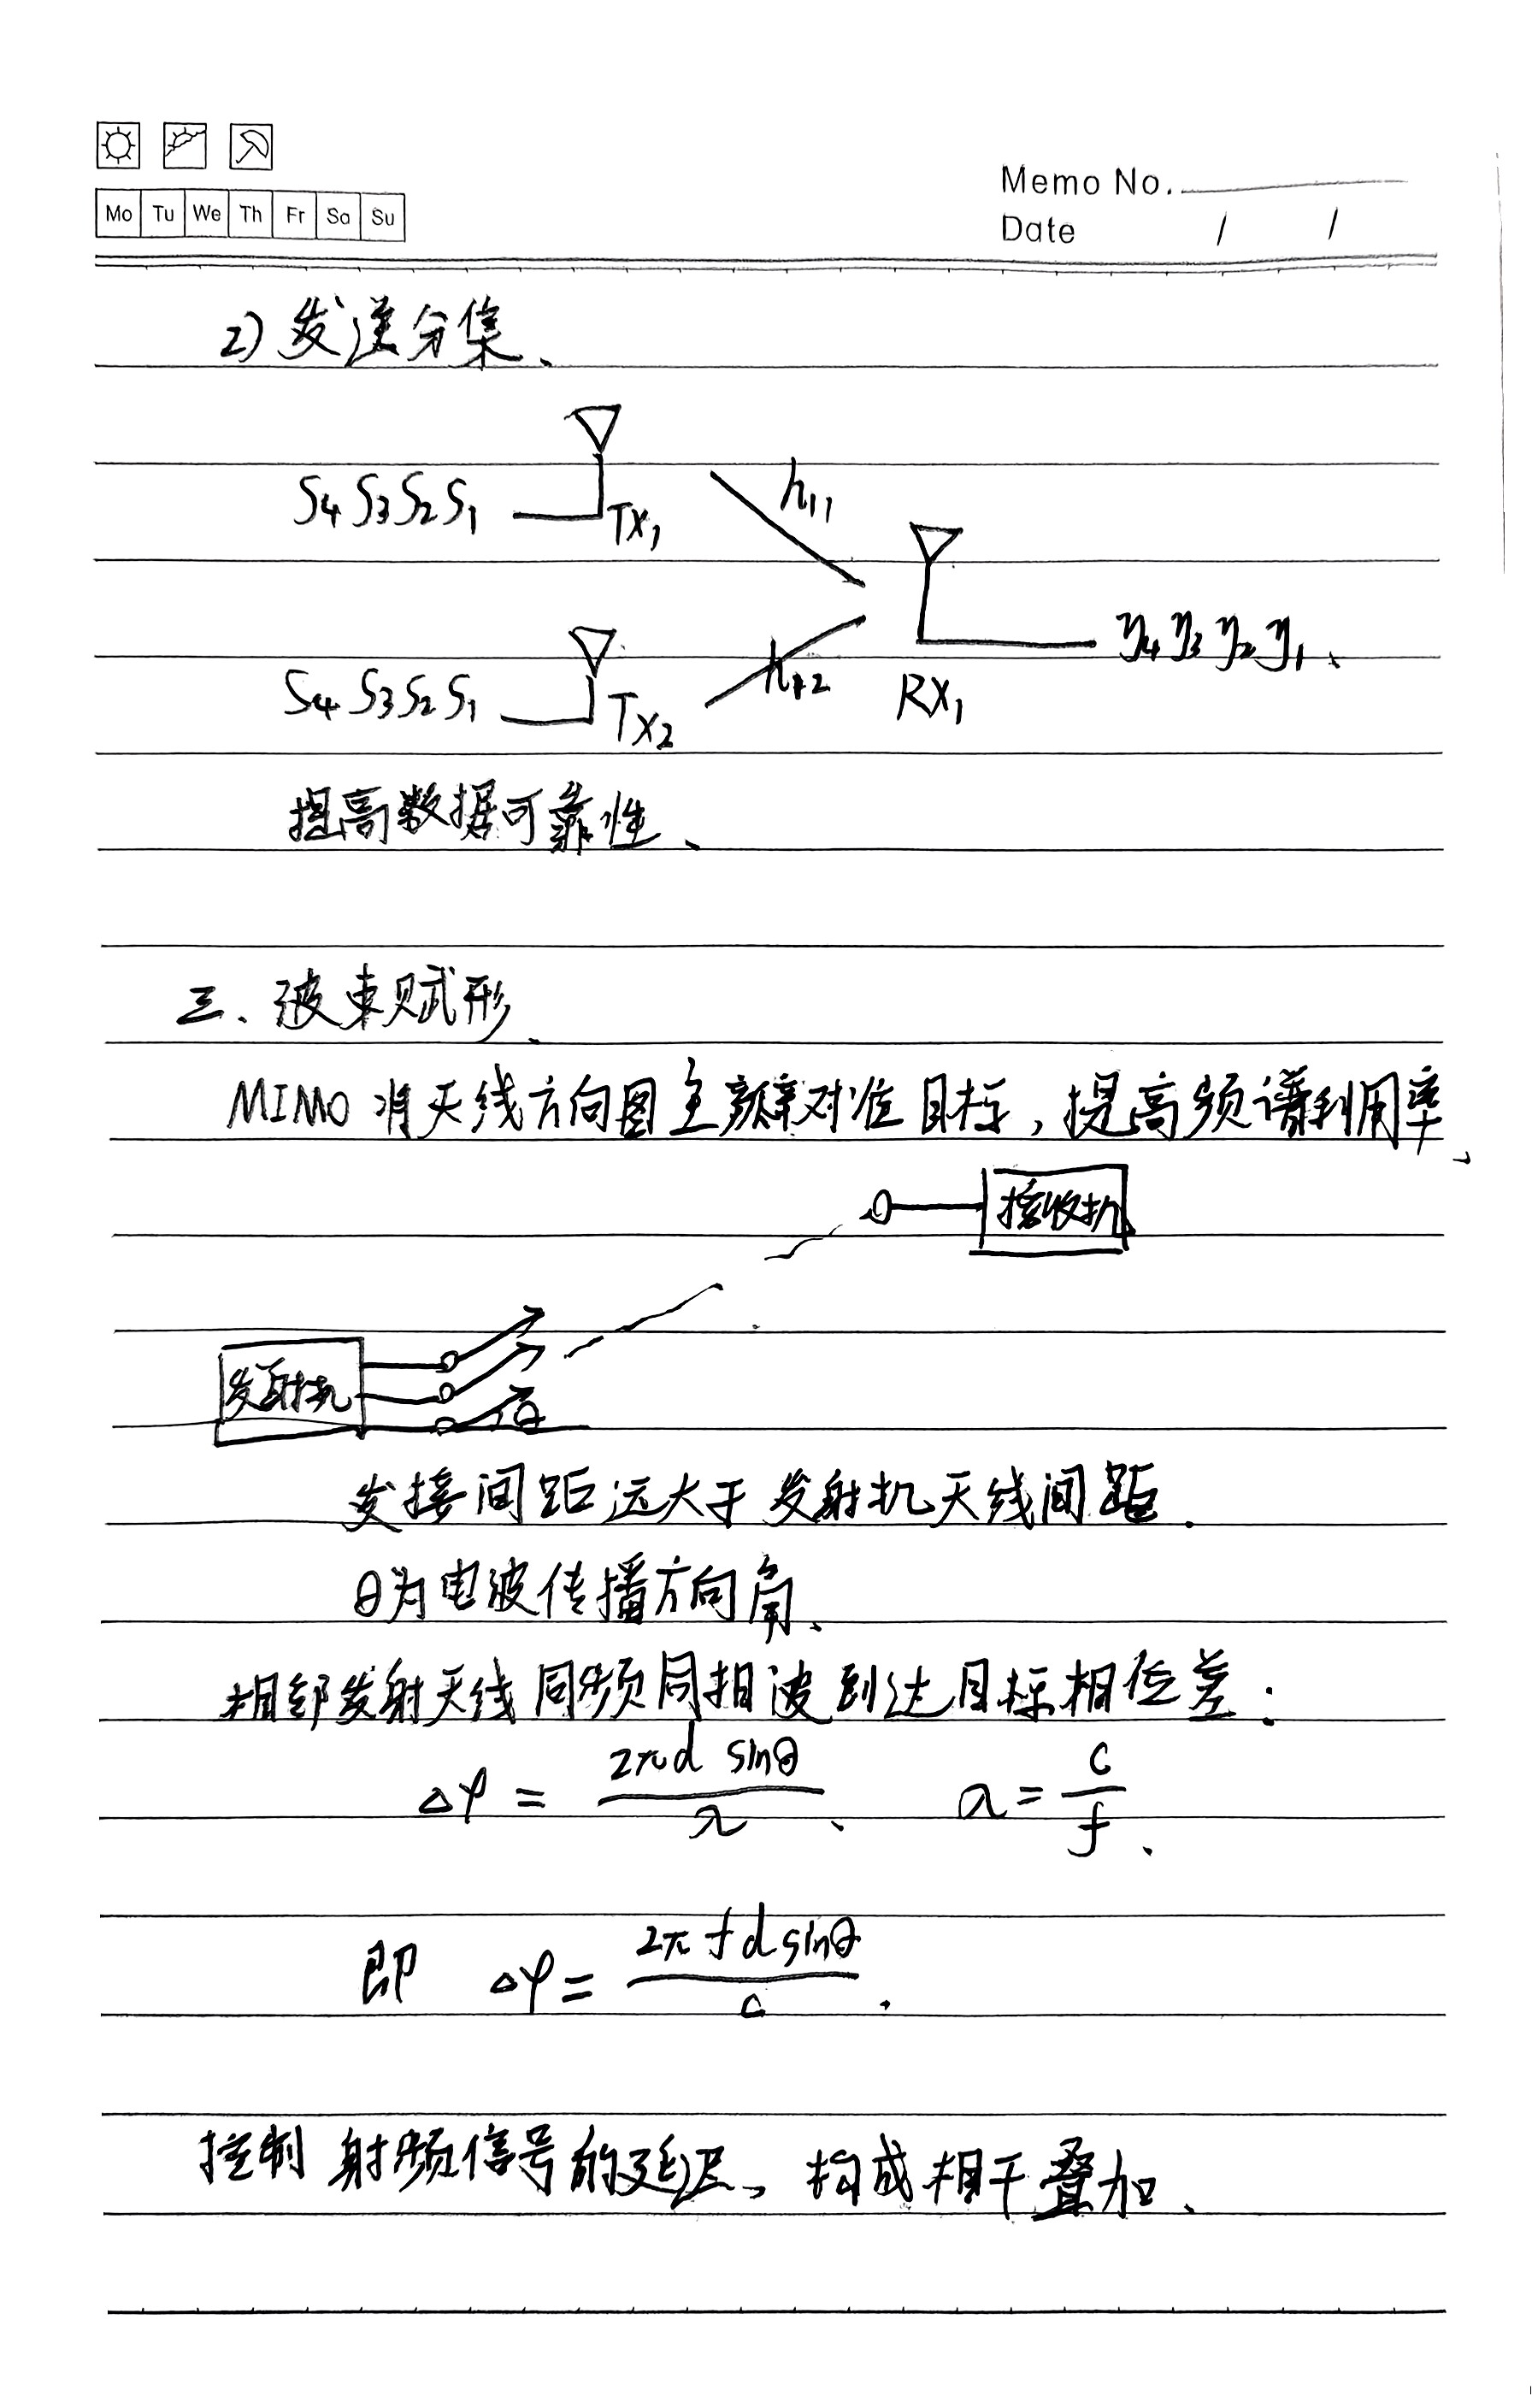 Memo No.
Mo Tu We Th Fr Sa Su
Date / /
2) 发送分集、
S4 S3 S2 S1 TX1 h11
y4 y3 y2 y1、
S4 S3 S2 S1 TX2 h12 RX1
提高数据可靠性、
三、波束赋形、
MIMO 将天线方向图主瓣对准目标，提高频谱利用率、
接收机
发射机 θ
发接间距远大于发射机天线间距.
θ为电波传播方向角、
相邻发射天线同频同相波到达目标相位差：
Δφ = 2πd sinθ / λ、 λ = c / f、
即 Δφ = 2πfd sinθ / c .
控制射频信号的延迟、构成相干叠加、